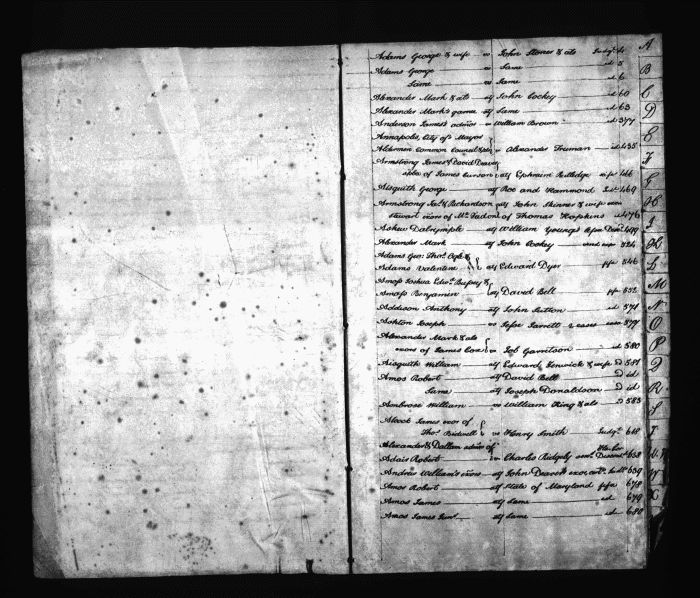 Adams George & wife vs John Stones & als Judgt
Adams George vs Same id 5
Same vs Same id 6
Alexander Mark & als ats John Cockey id 60
Alexander Mark's garnee ats Same id 63
Anderson James's admor vs William Brown id 377
Annapolis, City of Mayor
Aldermen Common Council &c vs Alexander Truman id 435
Armstrong James & David
of James ats Ephraim Rutledge 446
Aisquith George ats Roe and Hammond 469
Armstrong Jas. & Richardson ats John Skinner & wife exex
Stewart exors of of Thomas Hopkins id 476
Askew Dalrymple ats William Young's 499
Alexander Mark ats John Cockey 524
Adams Geo: Thos.
Adams Valentine ats Edward Dyer ffa 546
Amoss Joshua Edwd. Bussey &
Amoss Benjamin ats David Bell ffa 552
Addison Anthony ats John Sutton id 571
Ashton Joseph vs Jesse Jarrett 2 cases 577
Alexander Mark & als
exors of James Cox vs Job Garretson id 580
Aisquith William ats Edward Fenwick & wife D 581
Amos Robert ats David Bell D id
Same ats Joseph Donaldson D id
Ambrose William vs William King & als D 583
Alcock James exor of
Thos. Bidwell vs Henry Smith Judgt. 618
Alexander & Dallam admrs of
Adair Robert vs Charles Ridgely 658
Andrew William's exors ats John 659
Amos Robert ats State of Maryland ffa 678
Amos James ats Same id 679
Amos James Junr. ats Same id 680
A
B
C
D
E
F
G
H
I
K
L
M
N
O
P
Q
R
S
T
W
X